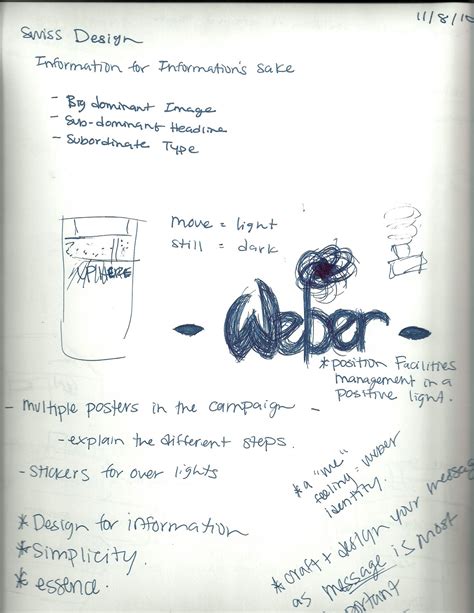 11/8/10
Swiss Design
Information for Information's sake
- Big dominant Image
- Sub-dominant Headline
- Subordinate Type
move = light
still = dark
- Weber -
* position Facilities
management in a
positive light.
- multiple posters in the campaign -
- explain the different steps.
- stickers for over lights
* a "me"
feeling = weber
identity.
* Design for information
* Simplicity.
* essence.
* craft + design your message
as message is most
important